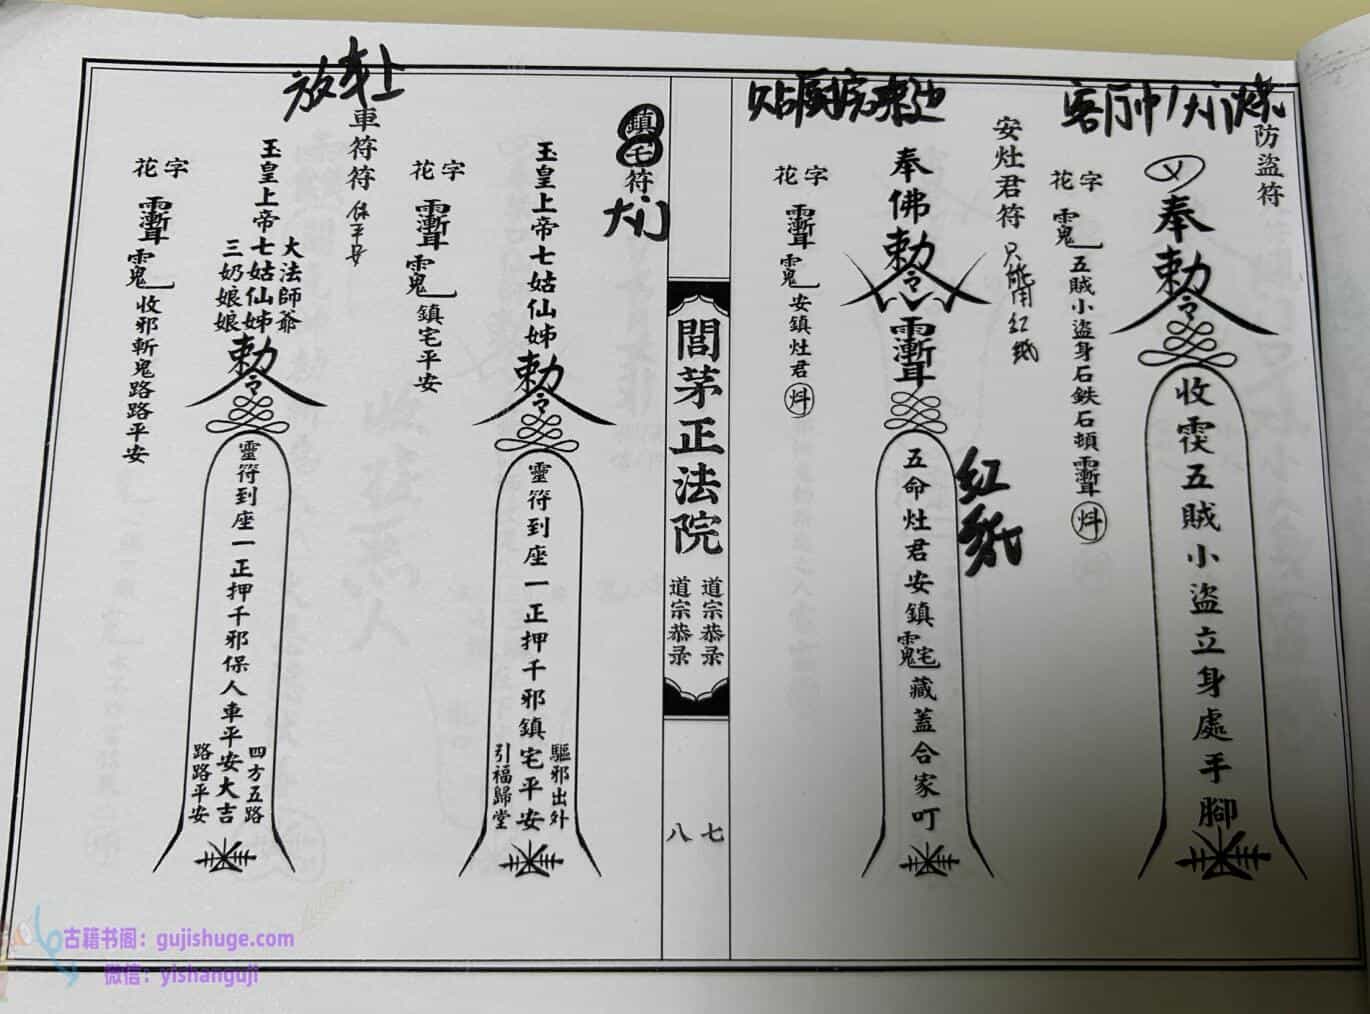 客厅中 大门烧
防盜符
奉
勅令
收 五賊小盜立身處手腳
花字
五賊小盜身石鉄石頓
贴厨房来边
安灶君符
只能用红纸
奉佛
勅令
五命灶君安鎮宅藏蓋合家叮
红纸
花字
安鎮灶君
閭茅正法院
道宗恭录
道宗恭录
七
八
鎮宅符
大门
玉皇上帝七姑仙姊
勅令
靈符到座一正押千邪鎮宅平安
驅邪出外
引福歸堂
花字
鎮宅平安
放车上
車符符
保平安
大法師爺
玉皇上帝七姑仙姊
三奶娘娘
勅令
靈符到座一正押千邪保人車平安大吉
四方五路
路路平安
花字
收邪斬鬼路路平安
古籍书阁：gujishuge.com
微信：yishanguji